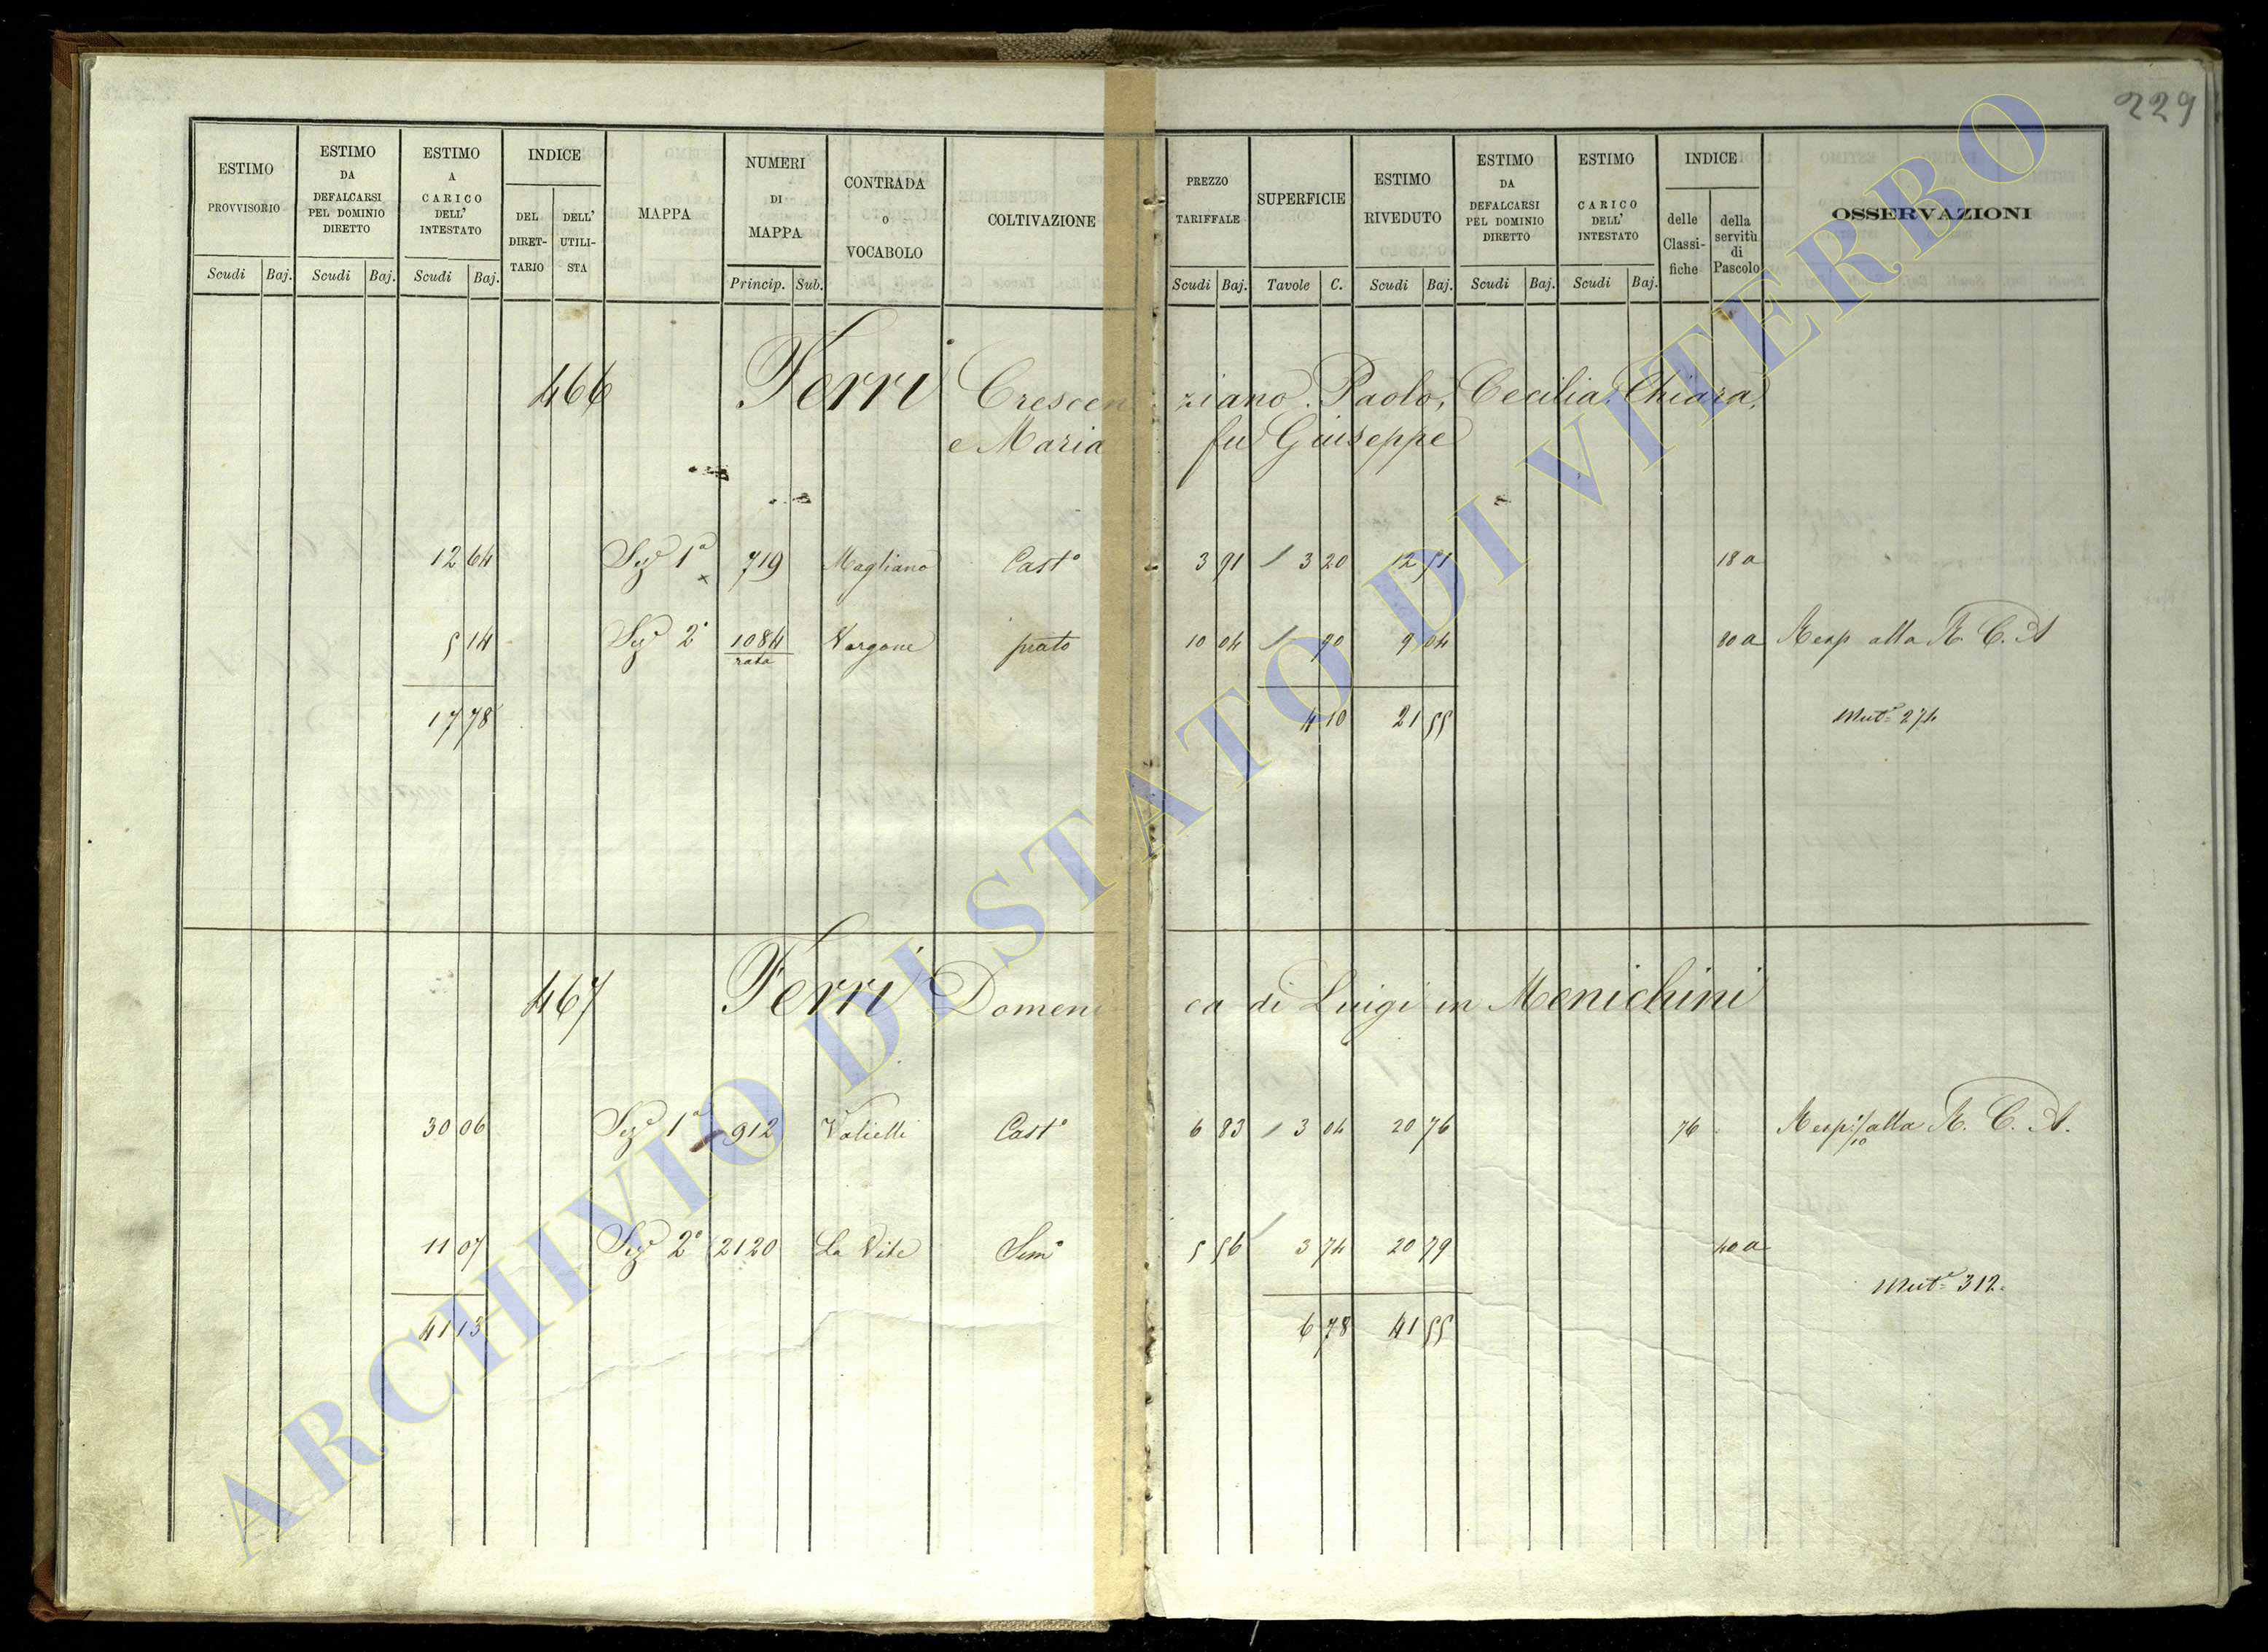 229
ESTIMO PROVVISORIO
Scudi Baj.
ESTIMO DA DEFALCARSI PEL DOMINIO DIRETTO
Scudi Baj.
ESTIMO A CARICO DELL' INTESTATO
Scudi Baj.
INDICE
DEL DIRET- TARIO
DELL' UTILI- STA
MAPPA
NUMERI DI MAPPA
Princip. Sub.
CONTRADA o VOCABOLO
COLTIVAZIONE
PREZZO TARIFFALE
Scudi Baj.
SUPERFICIE
Tavole C.
ESTIMO RIVEDUTO
Scudi Baj.
ESTIMO DA DEFALCARSI PEL DOMINIO DIRETTO
Scudi Baj.
ESTIMO A CARICO DELL' INTESTATO
Scudi Baj.
INDICE
delle Classi- fiche
della servitù di Pascolo
OSSERVAZIONI
466 Ferri Crescenziano, Paolo, Cecilia, Chiara,
e Maria fu Giuseppe
12 64 Sez 1a 719 Magliano Casto 3 91 3 20 12 51 18 a
5 14 Sez 2a 1084 Vargone prato 10 04 90 9 04 80 a Resp alla R. C. A
rata
17 78 4 10 21 55 Mute 274
467 Ferri Domenica di Luigi in Menichini
30 06 Sez 1a 912 Valielli Casto 6 83 3 04 20 76 76 Resp 1/10 alla R. C. A.
11 07 Sez 2a 2120 La Vite Semo 5 56 3 74 20 79 40 a
Mute 312.
41 13 6 78 41 55
ARCHIVIO DI STATO DI VITERBO